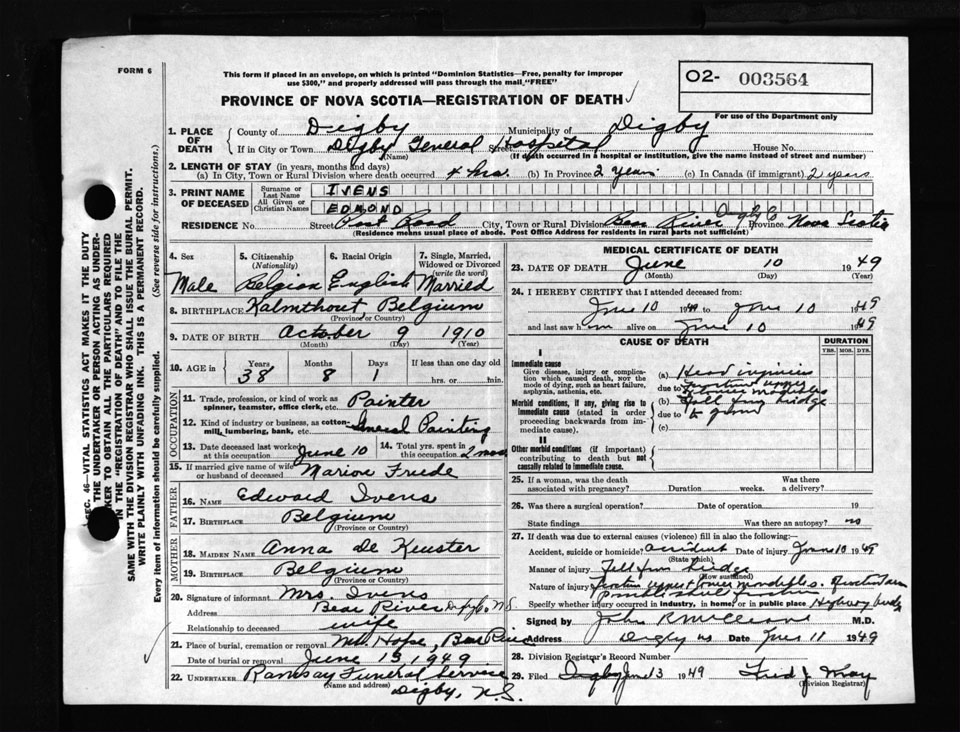 FORM 6
This form if placed in an envelope, on which is printed "Dominion Statistics—Free, penalty for improper
use $300," and properly addressed will pass through the mail "FREE"
O2- 003564
For use of the Department only
PROVINCE OF NOVA SCOTIA—REGISTRATION OF DEATH
SEC. 46—VITAL STATISTICS ACT MAKES IT THE DUTY
THE UNDERTAKER OR PERSON ACTING AS UNDER-
TAKER TO OBTAIN ALL THE PARTICULARS REQUIRED
IN THE "REGISTRATION OF DEATH" AND TO FILE THE
SAME WITH THE DIVISION REGISTRAR WHO SHALL ISSUE THE BURIAL PERMIT.
WRITE PLAINLY WITH UNFADING INK. THIS IS A PERMANENT RECORD.
Every item of information should be carefully supplied. (See reverse side for instructions.)
1. PLACE OF DEATH County of Digby Municipality of Digby
If in City or Town Digby General Hospital Street House No.
(Name) (If death occurred in a hospital or institution, give the name instead of street and number)
2. LENGTH OF STAY (in years, months and days)
(a) In City, Town or Rural Division where death occurred 4 hrs. (b) In Province 2 years (c) In Canada (if immigrant) 2 years
3. PRINT NAME OF DECEASED Surname or Last Name IVENS
All Given or Christian Names EDMOND
RESIDENCE No. Street Post Road City, Town or Rural Division Bear River Digby Co Province Nova Scotia
(Residence means usual place of abode. Post Office Address for residents in rural parts not sufficient)
4. Sex Male
5. Citizenship (Nationality) Belgian
6. Racial Origin English
7. Single, Married, Widowed or Divorced (write the word) Married
8. BIRTHPLACE Kalmthout Belgium
(Province or Country)
9. DATE OF BIRTH October 9 1910
(Month) (Day) (Year)
10. AGE in Years 38 Months 8 Days 1 If less than one day old hrs. or min.
OCCUPATION
11. Trade, profession, or kind of work as spinner, teamster, office clerk, etc. Painter
12. Kind of industry or business, as cotton-mill, lumbering, bank, etc. General Painting
13. Date deceased last worked at this occupation June 10
14. Total yrs. spent in this occupation 2 mos
15. If married give name of wife or husband of deceased Marion Friede
FATHER
16. NAME Edward Ivens
17. BIRTHPLACE Belgium
(Province or Country)
MOTHER
18. MAIDEN NAME Anna de Keuster
19. BIRTHPLACE Belgium
(Province or Country)
20. Signature of informant Mrs. Ivens
Address Bear River Digby Co. N.S.
Relationship to deceased wife
21. Place of burial, cremation or removal Mt. Hope, Bear River
Date of burial or removal June 13, 1949
22. UNDERTAKER Ramsay Funeral Service
(Name and address) Digby, N.S.
MEDICAL CERTIFICATE OF DEATH
23. DATE OF DEATH June 10 1949
(Month) (Day) (Year)
24. I HEREBY CERTIFY that I attended deceased from:
June 10 1949 to June 10 1949
and last saw him alive on June 10 1949
CAUSE OF DEATH DURATION
YRS. MOS. DYS.
I
Immediate cause
Give disease, injury or complication which caused death, NOT the mode of dying, such as heart failure, asphyxia, asthenia, etc.
(a) Head injuries
due to
Morbid conditions, if any, giving rise to immediate cause (stated in order proceeding backwards from immediate cause).
(b) Fall from bridge
due to to ground
(c)
II
Other morbid conditions (if important) contributing to death but not causally related to immediate cause.
25. If a woman, was the death associated with pregnancy? Duration weeks. Was there a delivery?
26. Was there a surgical operation? Date of operation 19
State findings Was there an autopsy? no
27. If death was due to external causes (violence) fill in also the following:
Accident, suicide or homicide? accident Date of injury June 10 1949
(State which)
Manner of injury Fell from bridge
(How sustained)
Nature of injury
Specify whether injury occurred in industry, in home, or in public place Highway bridge
Signed by M.D.
Address Digby NS Date June 11 1949
28. Division Registrar's Record Number
29. Filed Digby June 13 1949 Fred J. May
(Division Registrar)